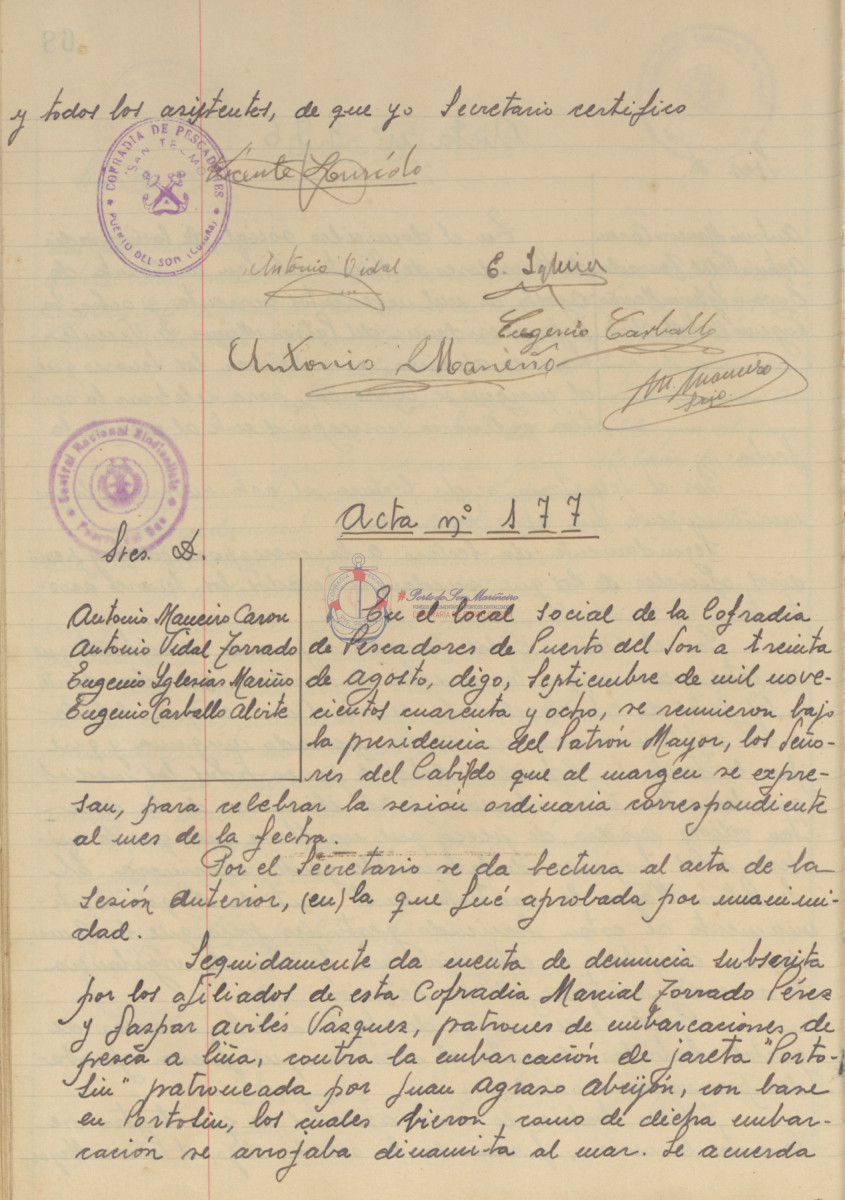 y todos los asistentes, de que yo Secretario certifico
COFRADIA DE PESCADORES
"SAN TELMO"
PUERTO DEL SON (Coruña)
Vicente
Antonio Vidal
E. Iglesias
Eugenio Carballo
Antonio Maneiro
M. Maneiro
Central Nacional Sindicalista
Puerto del Son
Acta nº 177
Sres. D.
Antonio Maneiro Caron
Antonio Vidal Torrado
Eugenio Yglesias Mariño
Eugenio Carballo Alcite
#Porto do Son Mariñeiro
En el local social de la Cofradia
de Pescadores de Puerto del Son a treinta
de agosto, digo, Septiembre de mil nove-
cientos cuarenta y ocho, se reunieron bajo
la presidencia del Patrón Mayor, los Seño-
res del Cabildo que al margen se expre-
san, para celebrar la sesión ordinaria correspondiente
al mes de la fecha.
Por el Secretario se da lectura al acta de la
sesión anterior, (en) la que fué aprobada por unanimi-
dad.
Seguidamente da cuenta de denuncia subscrita
por los afiliados de esta Cofradia Marcial Torrado Pérez
y Gaspar Avilés Vázquez, patrones de embarcaciones de
pesca a liña, contra la embarcación de jareta "Porto-
sin" patroneada por Juan Agraso Abeijón, con base
en Portosin, los cuales vieron, como de dicha embar-
cación se arrojaba dinamita al mar. Se acuerda